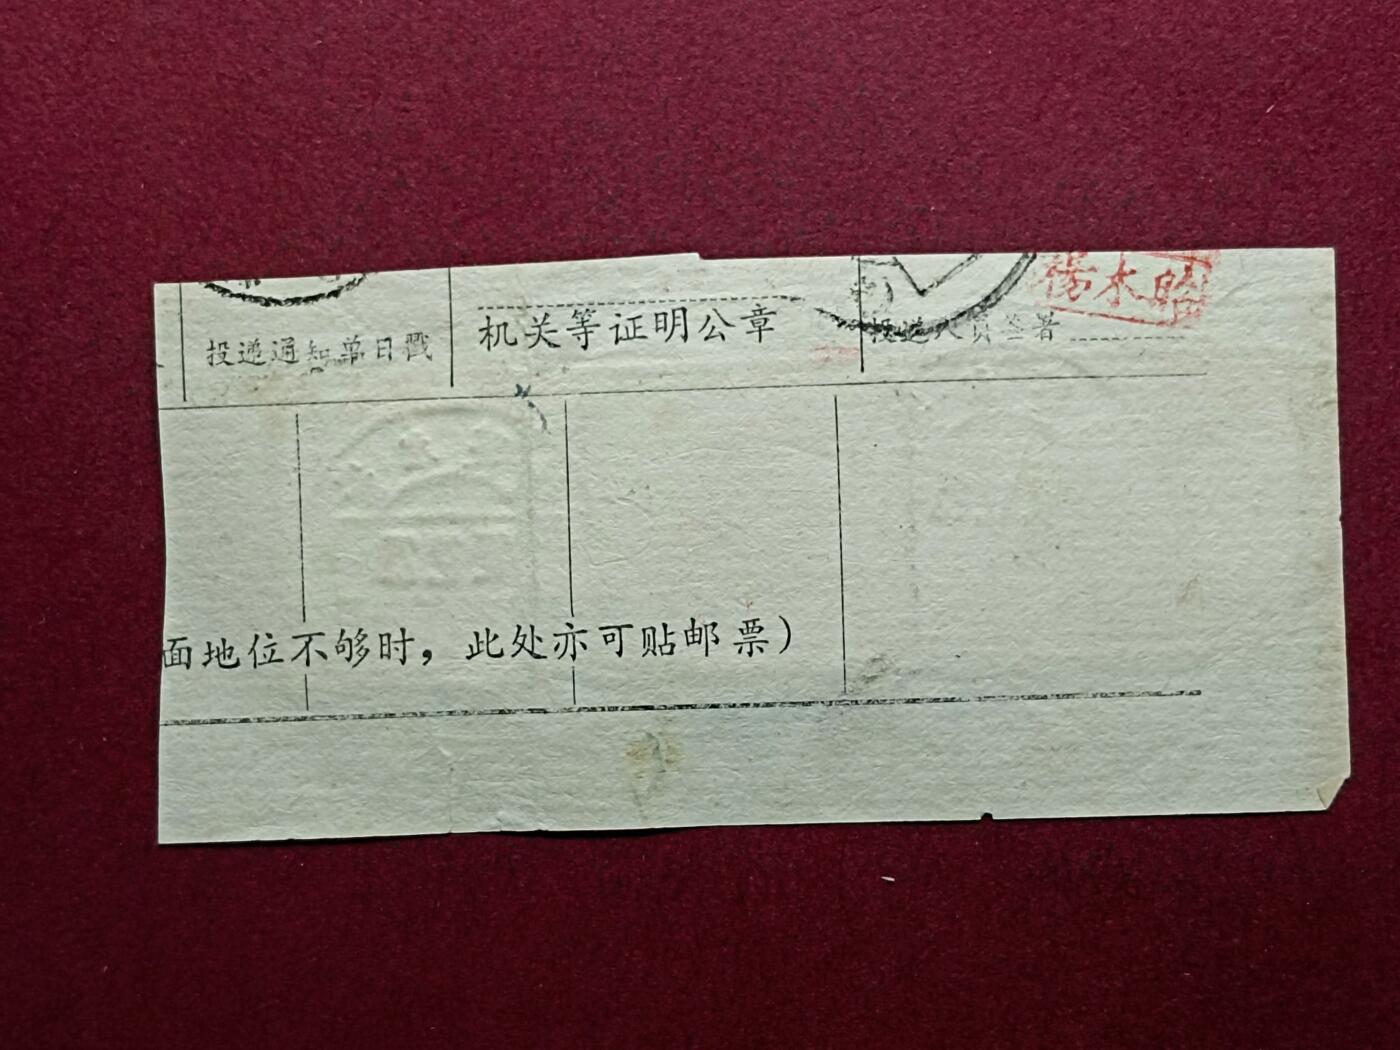 杨木
投递通知单日戳
机关等证明公章
投递人员签署
面地位不够时，此处亦可贴邮票）